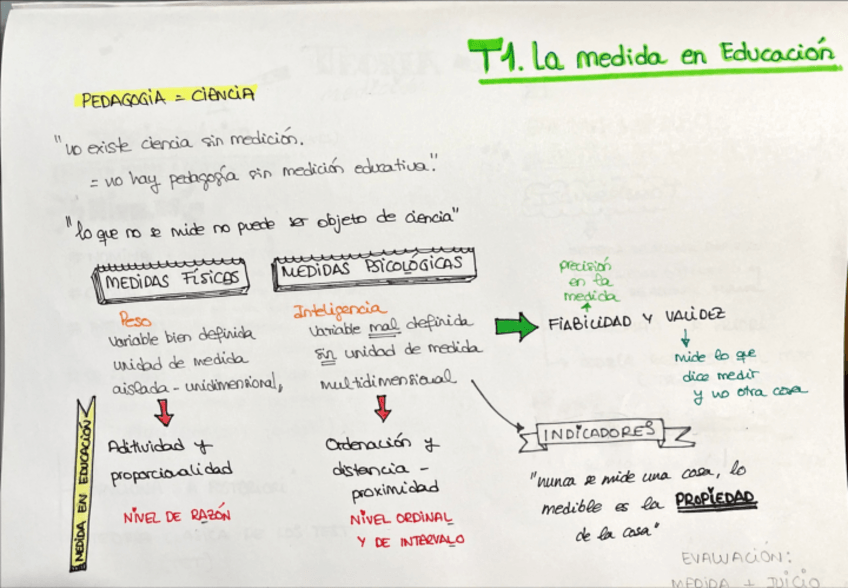 T1. La medida en Educación
PEDAGOGIA = CIENCIA
"no existe ciencia sin medición.
= no hay pedagogía sin medición educativa."
"lo que no se mide no puede ser objeto de ciencia"
MEDIDAS FÍSICAS
Peso
Variable bien definida
unidad de medida
aislada - unidimensional,
Aditividad y
proporcionalidad
NIVEL DE RAZÓN
MEDIDAS PSICOLÓGICAS
Inteligencia
Variable mal definida
sin unidad de medida
multidimensional
Ordenación y
distancia -
proximidad
NIVEL ORDINAL
Y DE INTERVALO
precisión
en la
medida
FIABILIDAD Y VALIDEZ
mide lo que
dice medir
y no otra cosa
INDICADORES
"nunca se mide una cosa, lo
medible es la PROPIEDAD
de la cosa"
MEDIDA EN EDUCACIÓN
EVALUACIÓN:
MEDIDA + JUICIO